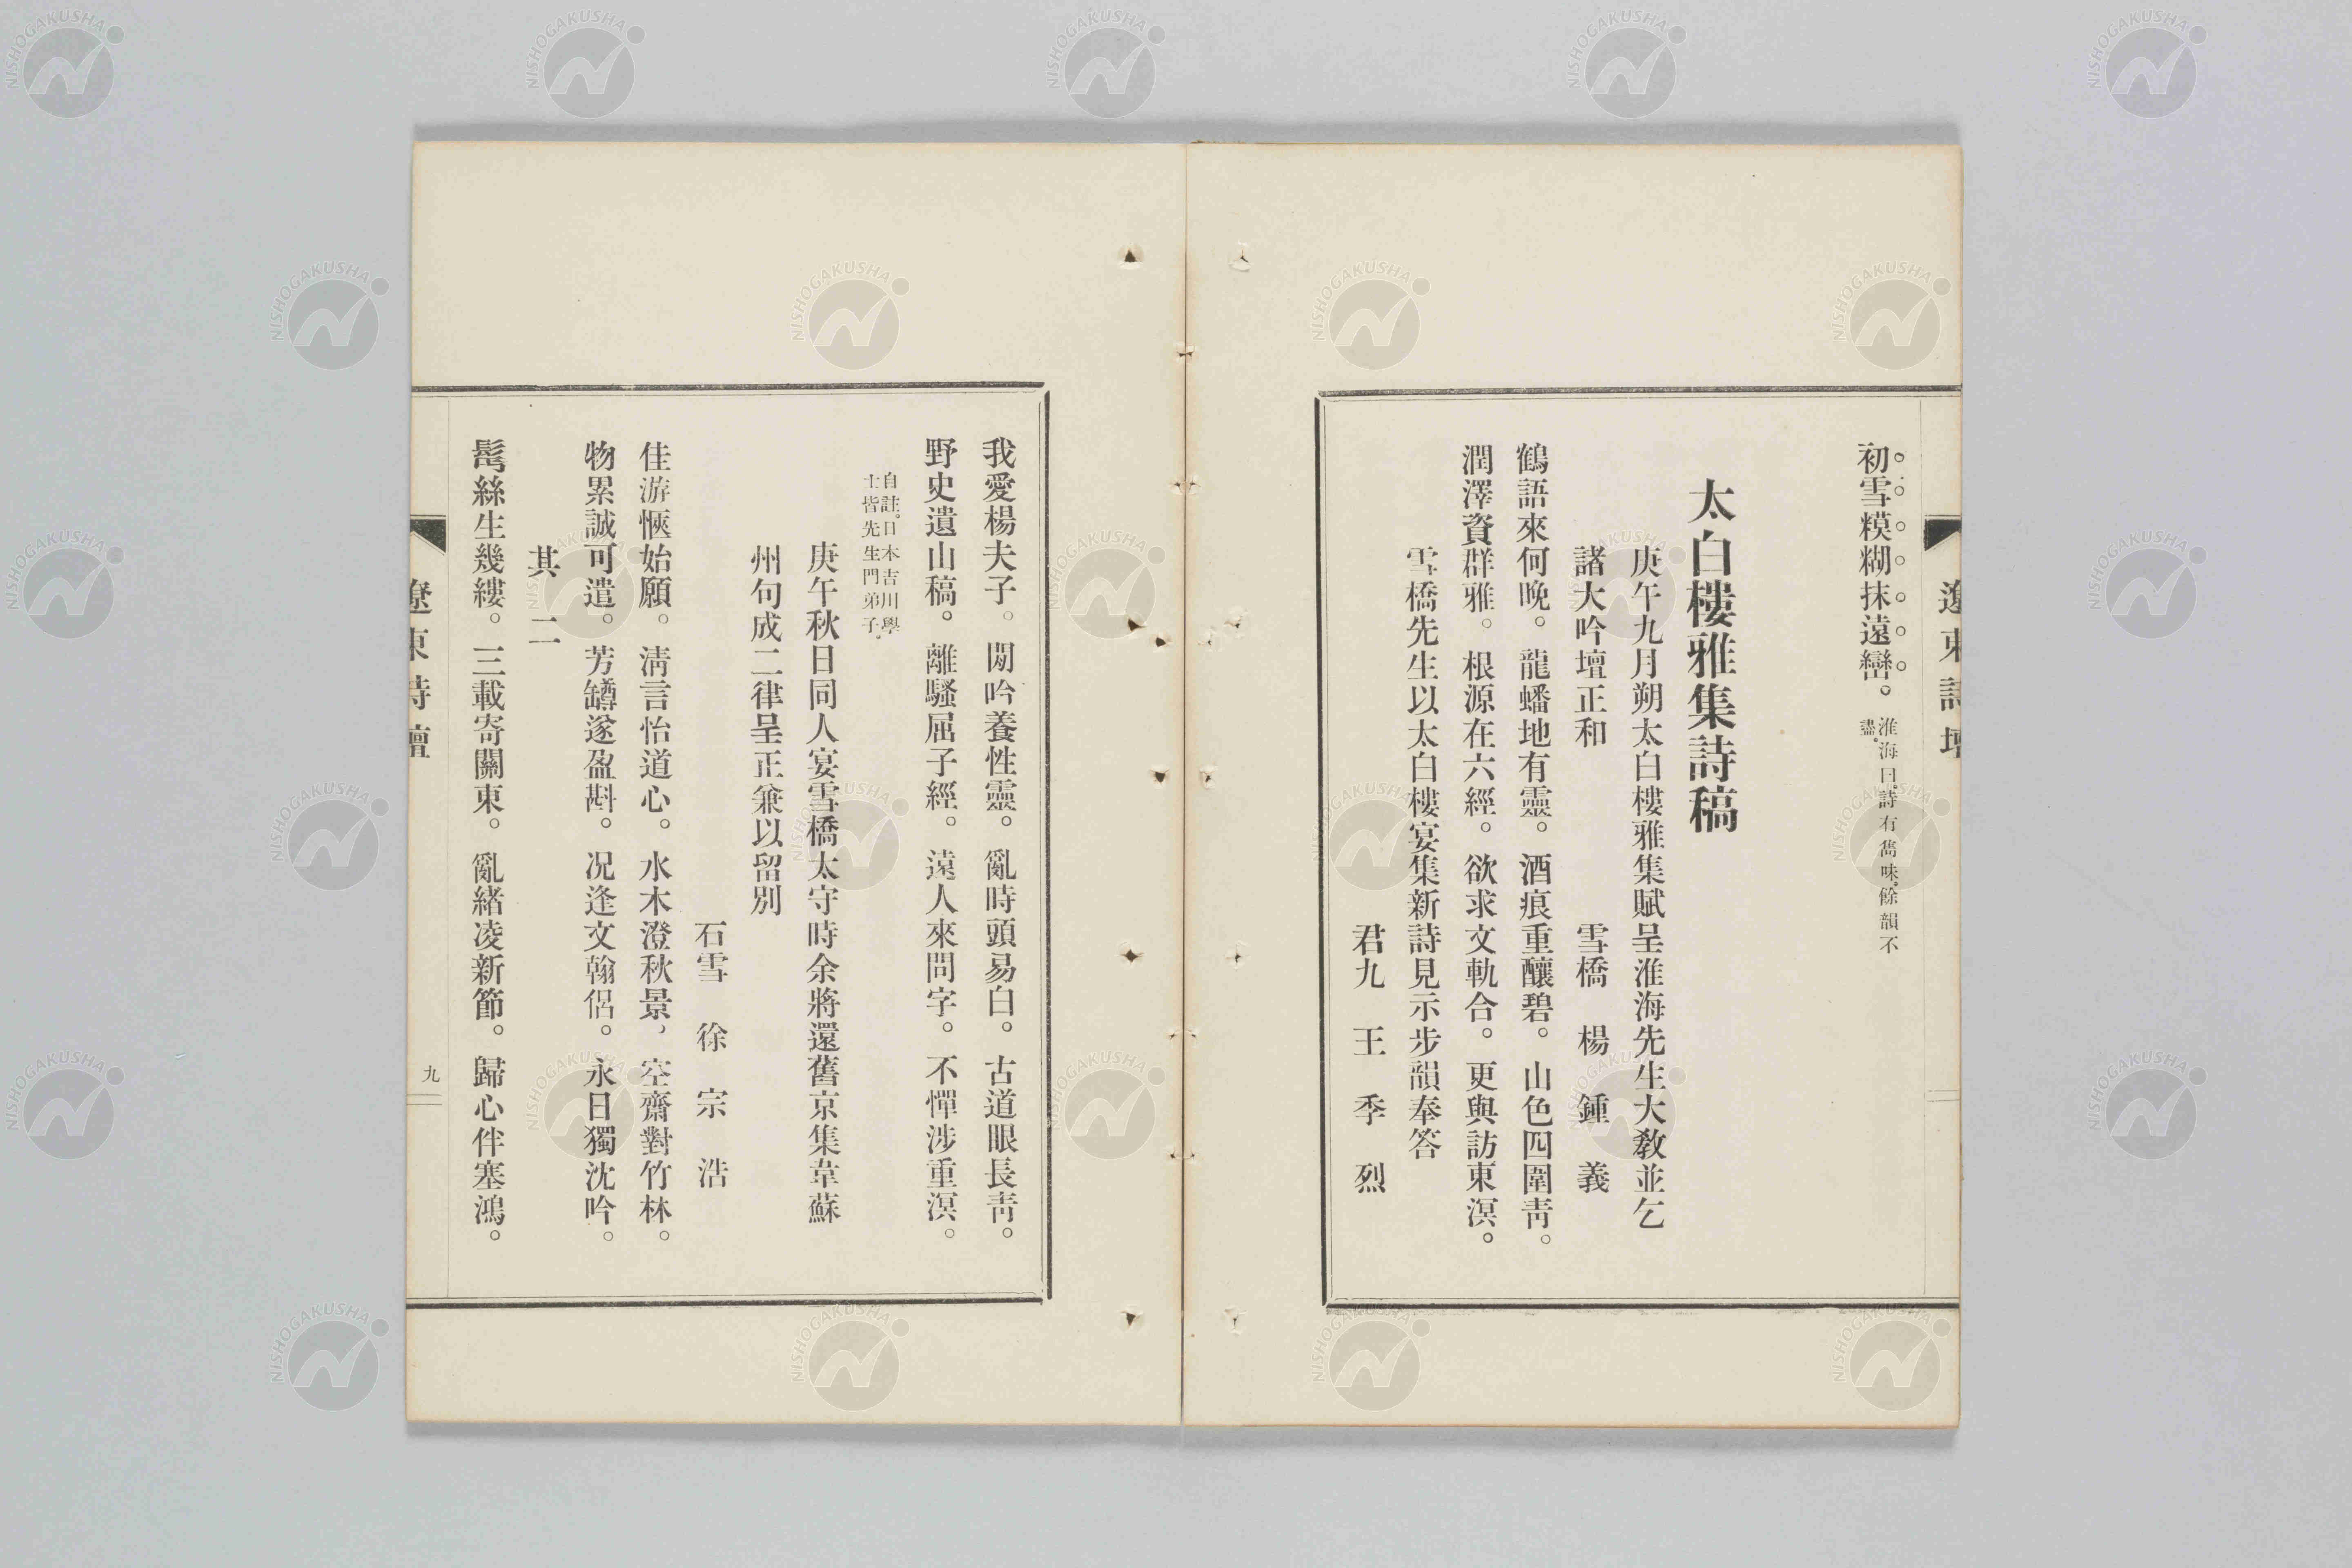 遼東詩壇
初雪糢糊抹遠巒。淮海曰。詩有雋味。餘韻不盡。
太白樓雅集詩稿
庚午九月朔太白樓雅集賦呈淮海先生大教並乞
諸大吟壇正和　雪橋　楊鍾羲
鶴語來何晚。龍蟠地有靈。酒痕重釀碧。山色四圍靑。
潤澤資群雅。根源在六經。欲求文軌合。更與訪東溟。
雪橋先生以太白樓宴集新詩見示步韻奉答
君九　王季烈
我愛楊夫子。閒吟養性靈。亂時頭易白。古道眼長靑。
野史遺山稿。離騷屈子經。遠人來問字。不憚涉重溟。
自註。日本吉川學士皆先生門弟子。
庚午秋日同人宴雪橋太守時余將還舊京集韋蘇
州句成二律呈正兼以留別
石雪　徐宗浩
佳游愜始願。淸言怡道心。水木澄秋景，空齋對竹林。
物累誠可遣。芳罇遂盈斟。况逢文翰侶。永日獨沈吟。
其二
髩絲生幾縷。三載寄關東。亂緖凌新節。歸心伴塞鴻。
遼東詩壇
九
NISHOGAKUSHA